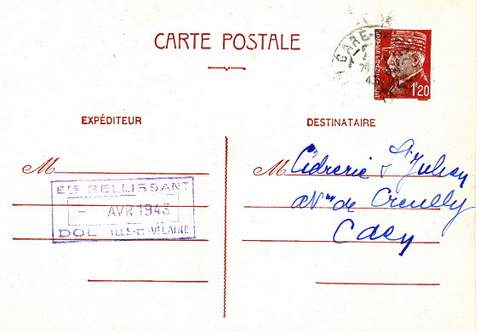 CARTE POSTALE
GARE
1f20
EXPÉDITEUR
DESTINATAIRE
M
Ets BELLISSANT
- AVR 1943
DOL ILLE-ET-VILAINE
M Cidrerie St Julien
de Creully
Caen